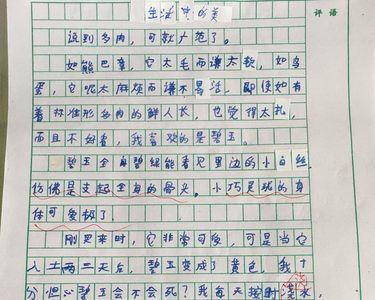 生活中的美
评语
说到多肉，可就广范了。
如熊巴掌，它太毛而谦太软，如乌
蛋，它呢太麻烦而谦不易活，即使如有
着标准形多肉的鲜人长，也觉得太扎，
而且不好看，我喜欢的是碧玉。
碧玉全身碧绿能看见里边的小白丝
仿佛是支起全身的骨头。小巧灵珑的身
体可爱极了。
刚买来时，它非常可爱，可是当它
入土两三天后，碧玉变成了黄色，我十
分担心碧玉会不会死？我每天按时浇水，